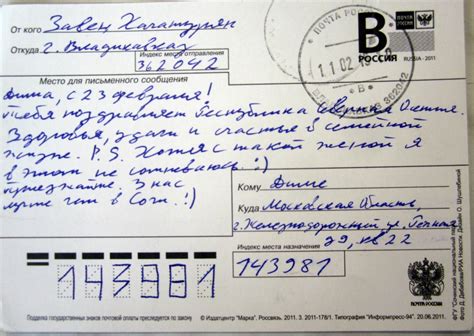 От кого Завен Хачатурян
Откуда г. Владикавказ
Индекс места отправления
362042
Место для письменного сообщения
Дима, с 23 февраля!
Тебя поздравляет Республика Северная Осетия.
Здоровья, удачи и счастья в семейной
жизни. P.S. Хотя с такой женой я
в этом не сомневаюсь. :)
приезжайте. У нас
лучше чем в Сочи. :)
ПОЧТА РОССИИ
11 02
362042
B
РОССИЯ
RUSSIA · 2011
Кому Диме
Куда Московская Область,
г. Железнодорожный ул.
29, кв 22
Индекс места назначения
143981
143981
Подделка государственных знаков почтовой оплаты преследуется по закону
© Издатцентр "Марка". Россвязь. 2011. З. 2011-178/1. Типография "Информпресс-94". 20.06.2011.